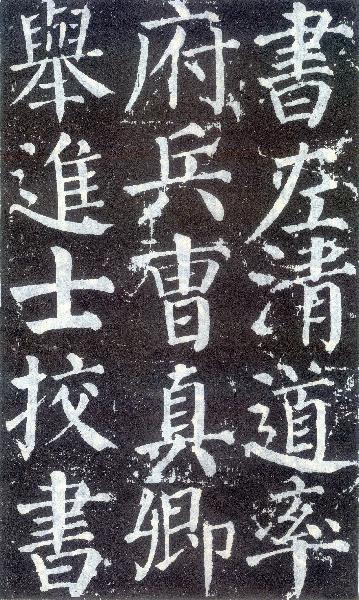 書左清道率
府兵曹真卿
舉進士校書